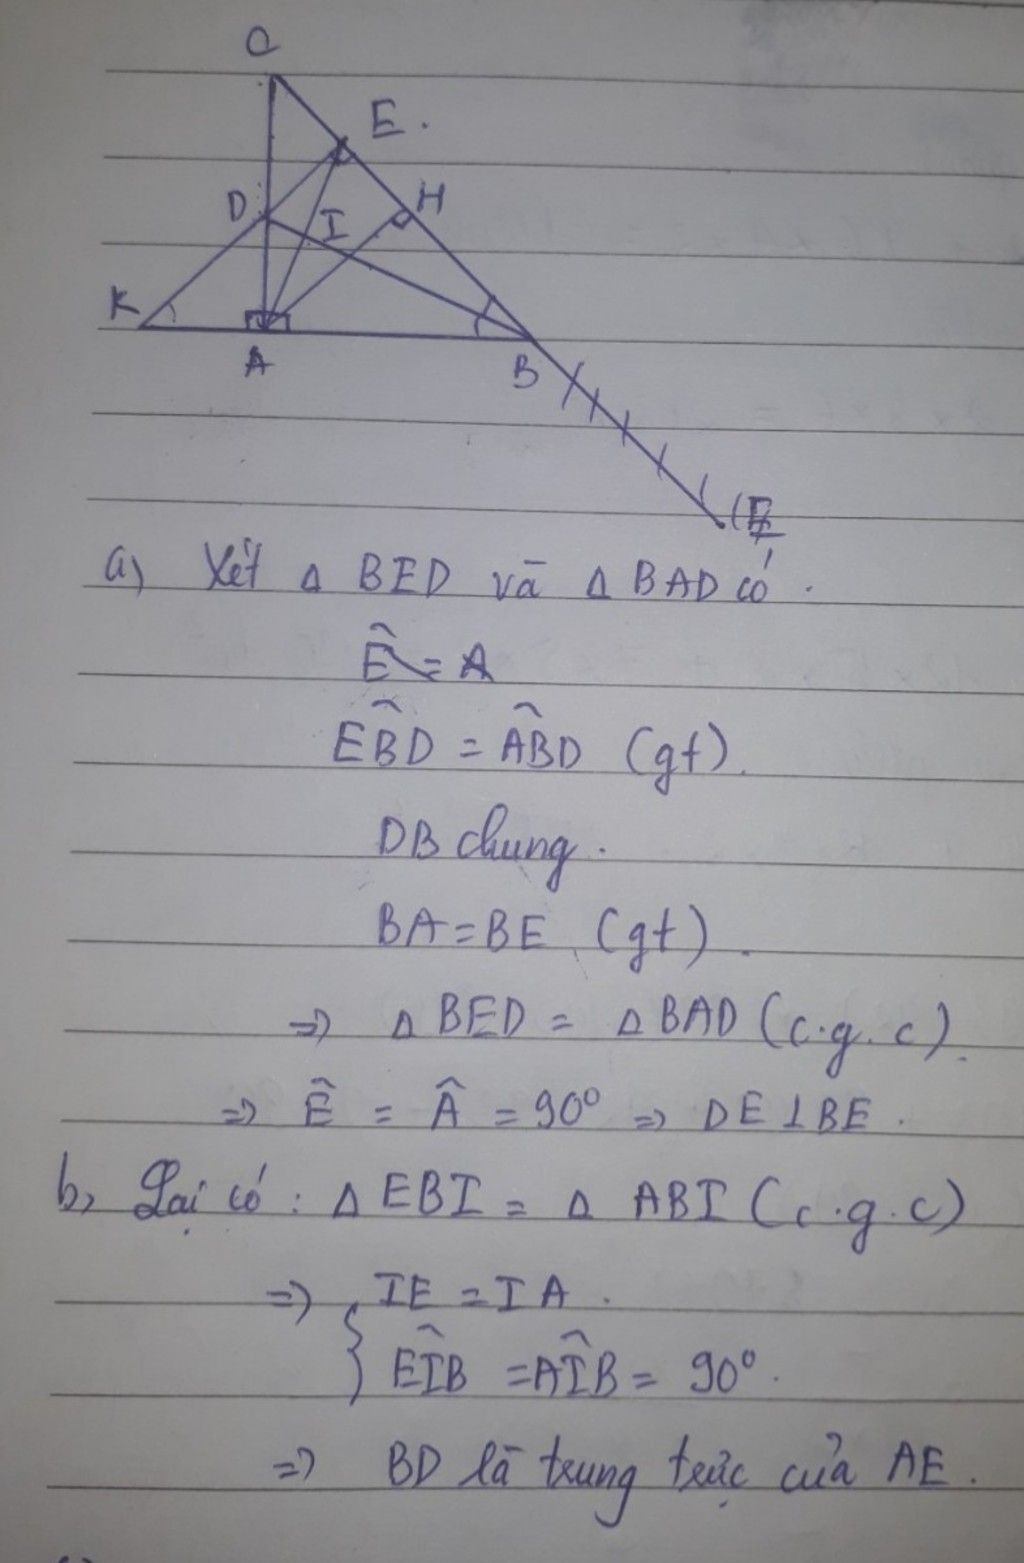 C
E.
D
I
H
K
A
B
a) Xét Δ BED và Δ BAD có.
Ê = A
EB̂D = AB̂D (gt).
DB chung.
BA = BE (gt).
=> Δ BED = Δ BAD (c.g.c).
=> Ê = Â = 90° => DE ⊥ BE.
b, Lại có: Δ EBI = Δ ABI (c.g.c)
=> { IE = IA.
EÎB = AÎB = 90°.
=> BD là trung trực của AE.